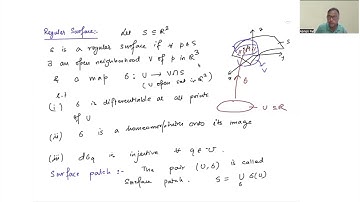 Regular Surface: Let S ⊆ R²
S is a regular surface if ∀ p∈S
∃ an open neighborhood V of p in R³
& a map σ: U → V∩S
(U open set in R²)
s.t
(i) σ is differentiable at all points
of U
(ii) σ is a homeomorphism onto its image
(iii) dσq is injective ∀ q∈U.
Surface patch:- The pair (U, σ) is called
Surface patch. S = ∪ σ(U)
σ
z
y
V
σ
U ⊆ R